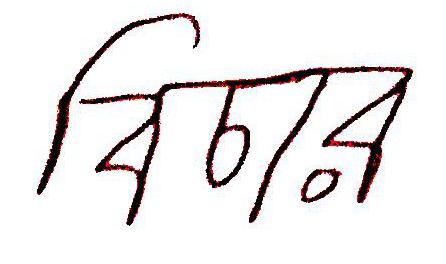 বিচার